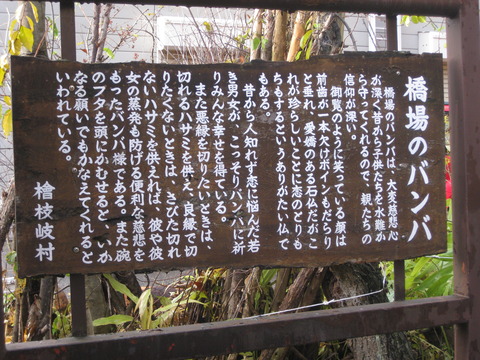 橋場のバンバ
橋場のバンバは、大変慈悲心
が深く昔から子供たちを水難か
ら守ってくれるので、親たちの
信仰が深い。
御覧のように笑っている顔は
前歯が一本欠けボインもだらり
と垂れ、愛橋のある石仏だがこ
れが珍らしいことに恋のとりも
ちもするというありがたい仏で
もある。
昔から人知れず恋に悩んだ若
き男女が、こっそりバンバに祈
りみんな幸せを得ている。
また悪縁を切りたいときは、
切れるハサミを供え、良縁で切
りたくないときは、さびた切れ
ないハサミを供えれば、彼や彼
女の蒸発も防げる便利な慈悲を
もったバンバ様である。また椀
のフタを頭にかむせると、いか
なる願いでもかなえてくれると
いわれている。
檜枝岐村